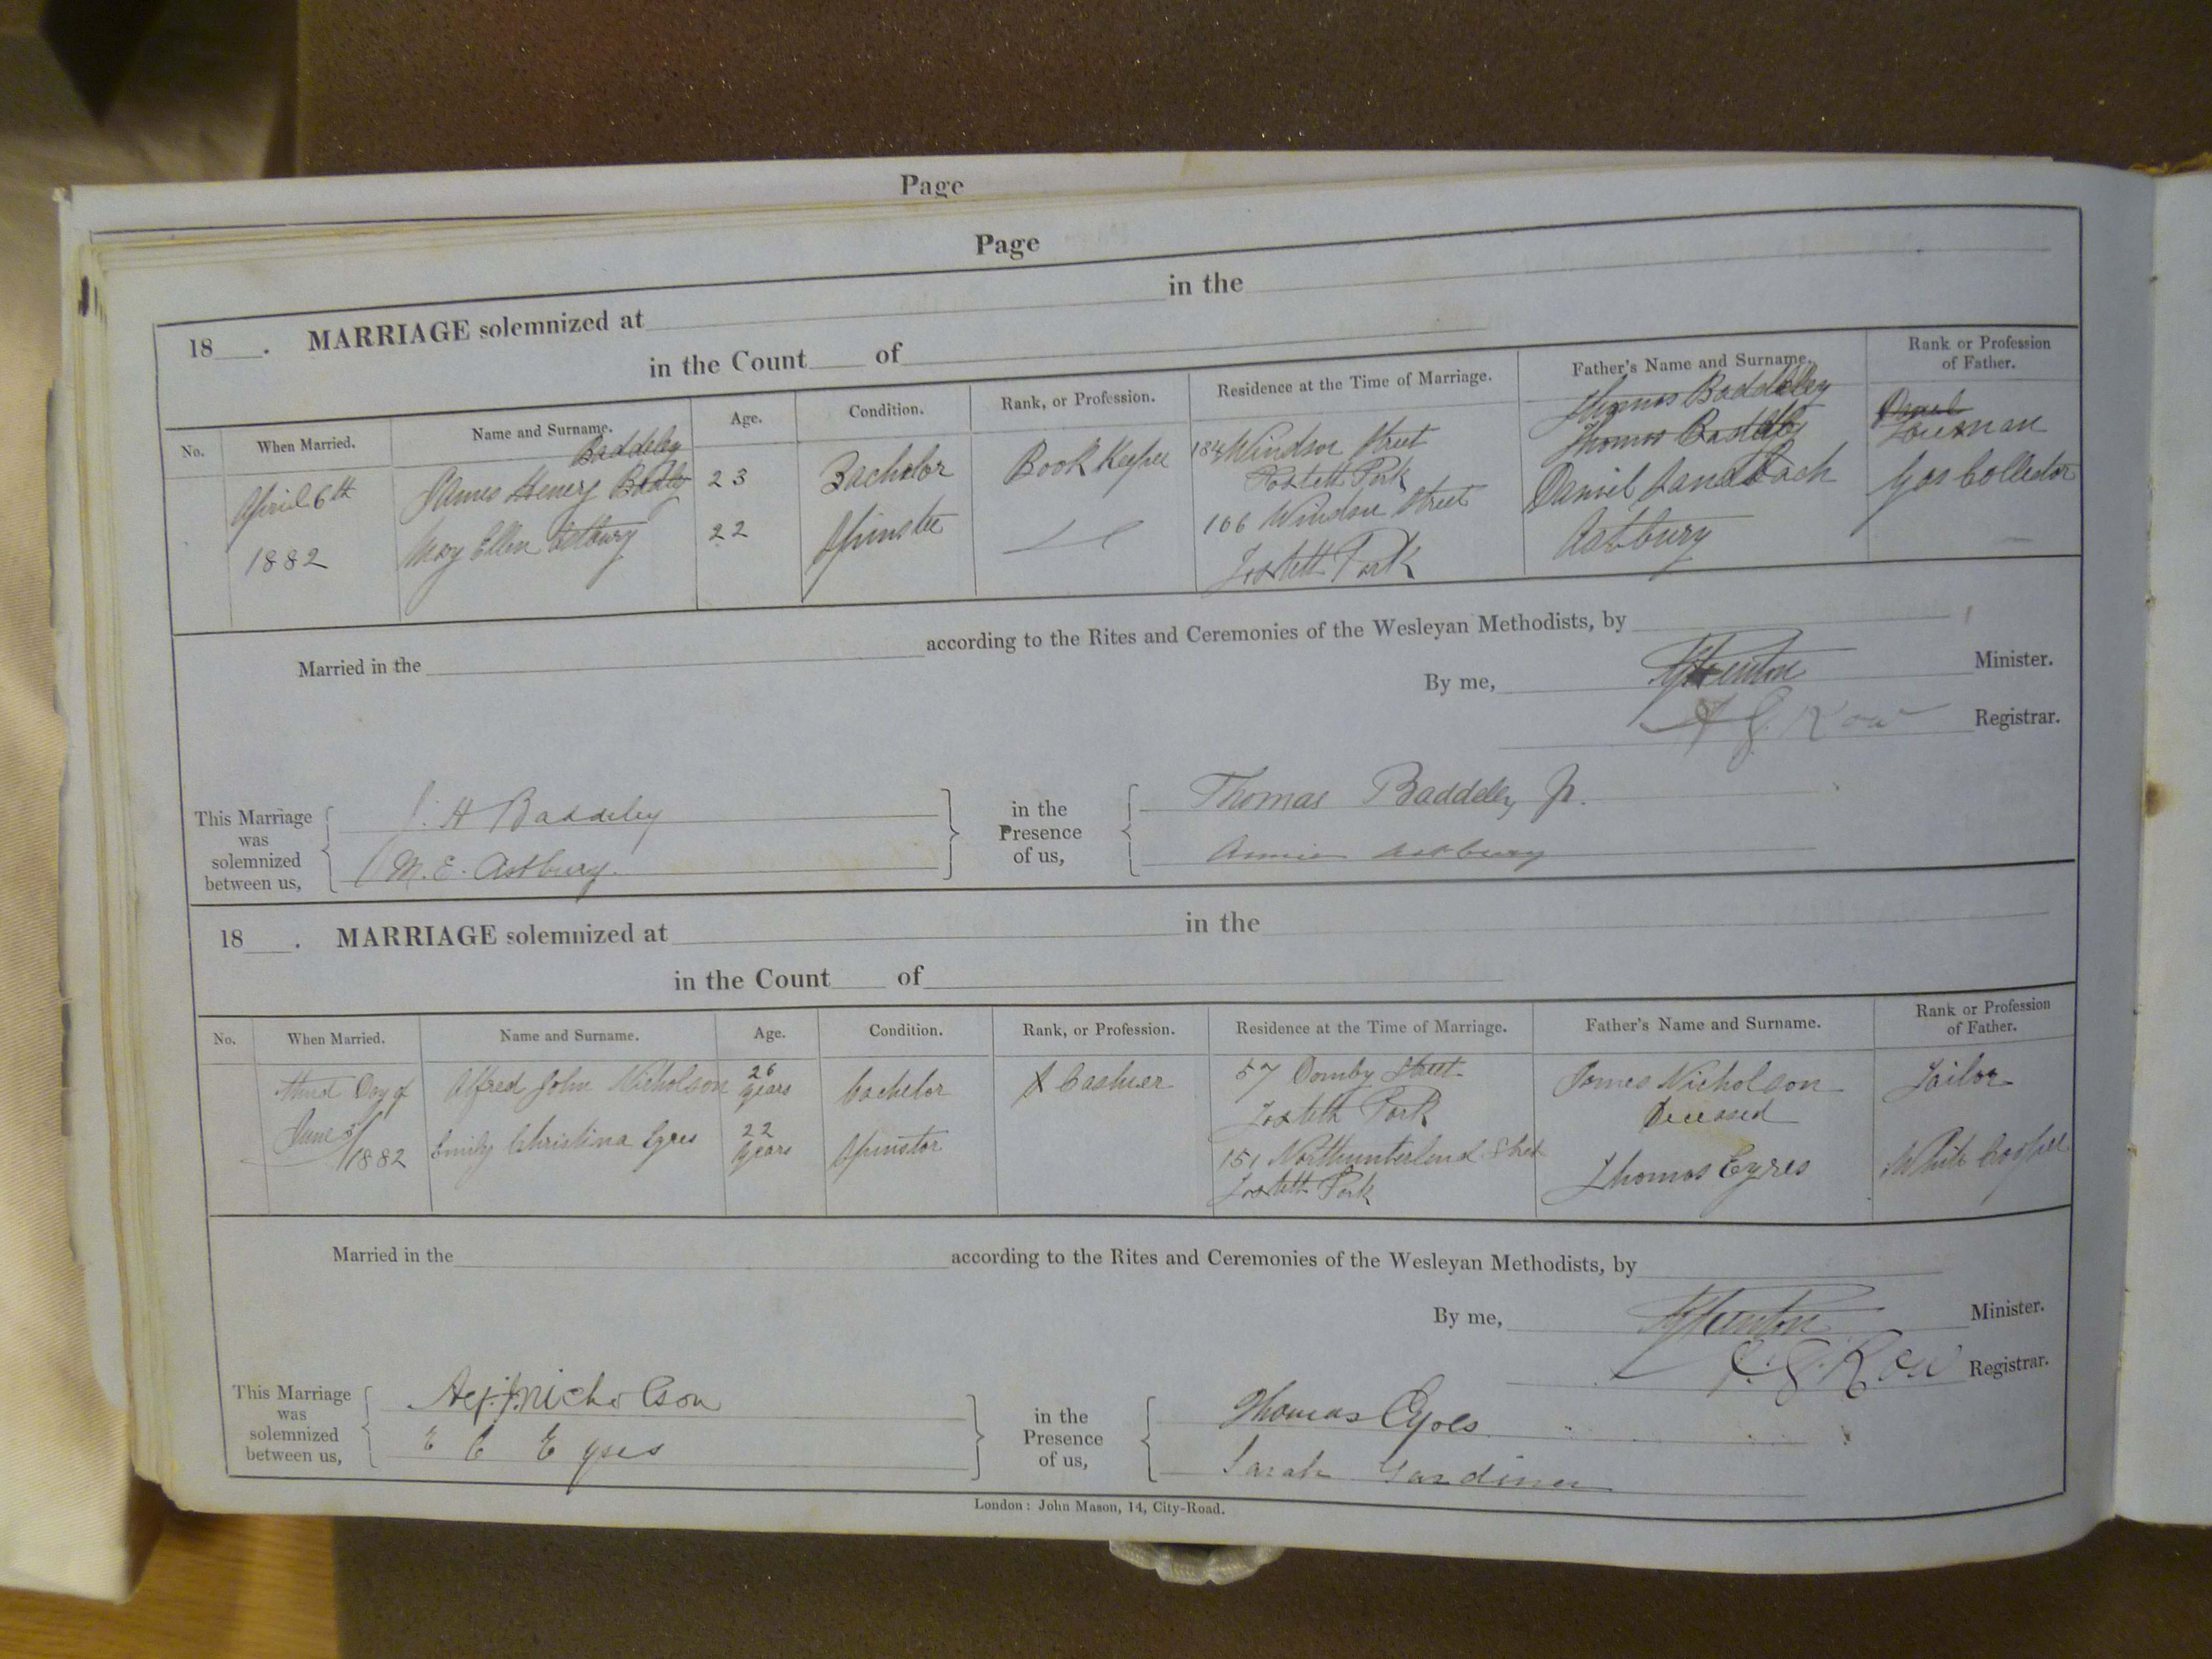 Page
Page
18 . MARRIAGE solemnized at in the
in the Count of
No. When Married. Name and Surname. Age. Condition. Rank, or Profession. Residence at the Time of Marriage. Father's Name and Surname. Rank or Profession of Father.
Baddeley Thomas Baddeley
April 6th James Henry 23 Bachelor Book Keeper 184 Windsor Street Thomas Foreman
Toxteth Park
1882 Mary Ellen Astbury 22 Spinster 166 Windsor Street Daniel Sandbach Gas Collector
Toxteth Park Astbury
Married in the according to the Rites and Ceremonies of the Wesleyan Methodists, by
By me, Minister.
Row Registrar.
This Marriage was solemnized between us,
J. H Baddeley
M. E. Astbury.
in the Presence of us,
Thomas Baddeley Jr.
Annie Astbury
18 . MARRIAGE solemnized at in the
in the Count of
No. When Married. Name and Surname. Age. Condition. Rank, or Profession. Residence at the Time of Marriage. Father's Name and Surname. Rank or Profession of Father.
third Day of Alfred John Nicholson 26 years bachelor Cashier 57 Domby Street James Nicholson Tailor
Toxteth Park Deceased
June 1882 Emily Christina Eyres 22 years Spinster 151 Northumberland Toxteth Park Thomas Eyres White Cooper
Married in the according to the Rites and Ceremonies of the Wesleyan Methodists, by
By me, Minister.
Row Registrar.
This Marriage was solemnized between us,
Alf. J. Nicholson
E C Eyres
in the Presence of us,
Thomas Eyres
Sarah Gardiner
London: John Mason, 14, City-Road.